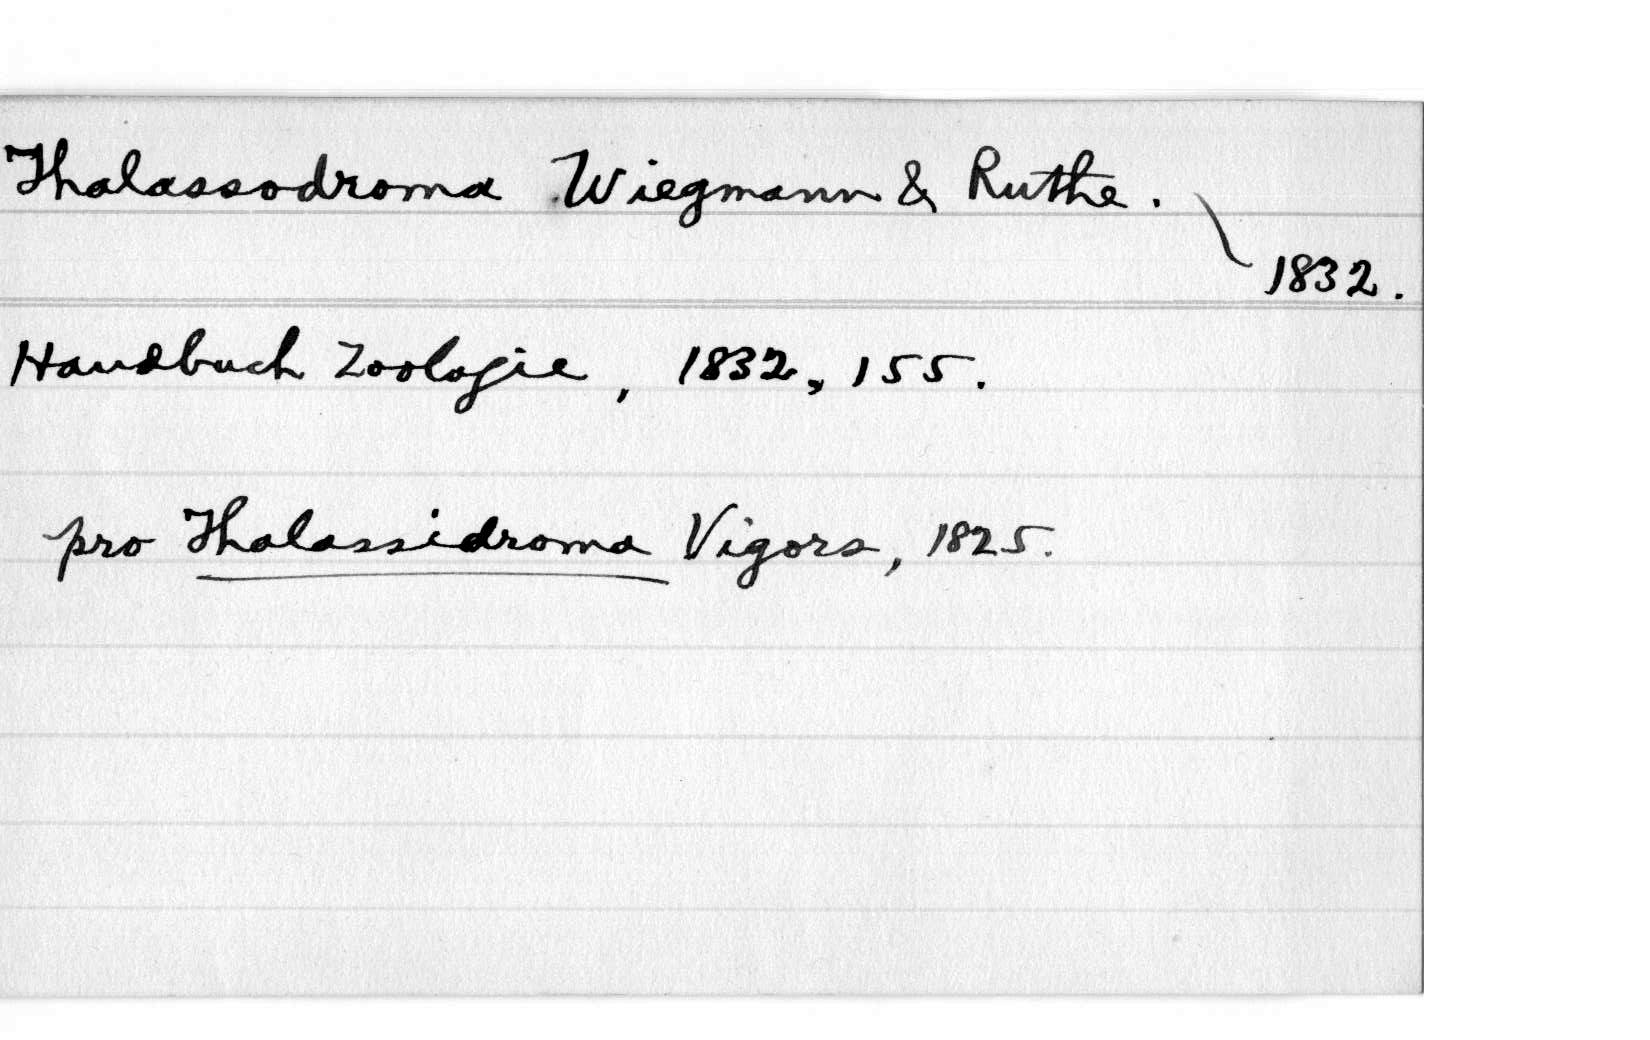 Thalassodroma Wiegmann & Ruthe.
1832.
Handbuch Zoologie, 1832, 155.
pro Thalassidroma Vigors, 1825.